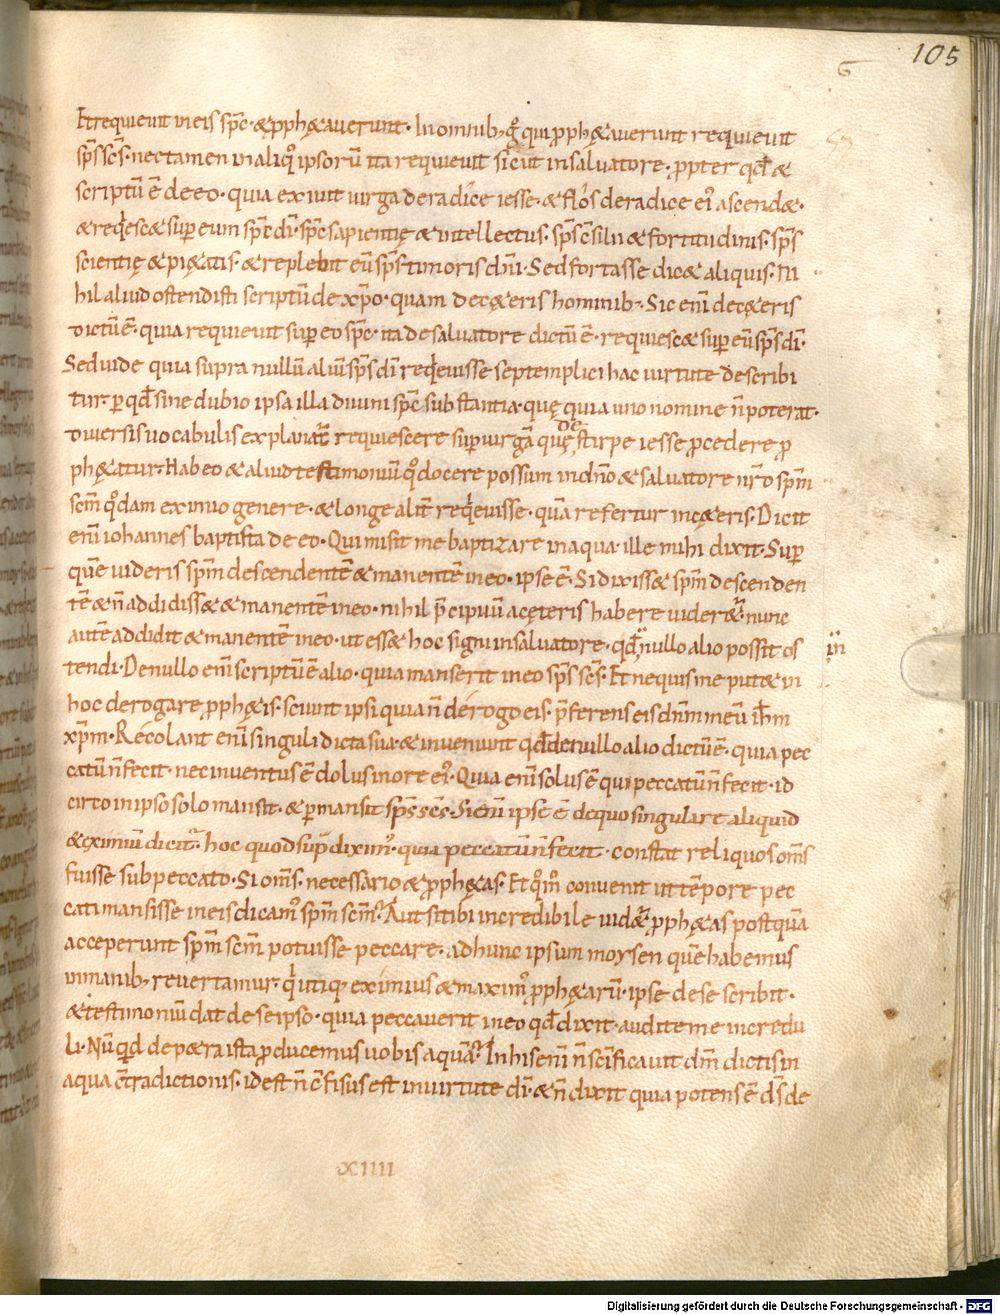 105
Et requieuit in eis sp̄c · & pph&auerunt · In omnib; g̊ qui pph&auerunt requieuit
sp̄s sc̄s · nec tamen in aliq̊ ipsorū ita requieuit sicut in saluatore · ppter qd̄ &
scriptū ē de eo · quia exiuit uirga de radice iesse · & flos de radice ei' ascend& ·
& req'esc& super eum sp̄c dī · sp̄c sapientię & intellectus · sp̄s c̄silii & fortitudinis · sp̄s
scientię & pi&atis · & replebit eū sp̄s timoris dn̄i · Sed fortasse dic& aliquis · Ni
hil aliud ostendisti scriptū de xp̄o · quam de c&eris hominib; · Sic eni de c&eris
dictū ē · quia requieuit super eo sp̄c · ita de saluatore dictū ē · requiesc& super eū sp̄s dī ·
Sed uide quia supra nullū aliū sp̄s dī req'euisse septemplici hac uirtute describi
tur · p qd̄ sine dubio ipsa illa diuini sp̄c substantia · quę quia uno nomine n̄ poterat ·
diuersis uocabulis explanat̄ requiescere super uirgā quę de stirpe iesse pcedere p
ph&atur · Habeo & aliud testimoniū q̊ docere possum in dn̄o & saluatore nr̄o sp̄m
sc̄m q̊dam eximio genere · & longe alit̄ req'euisse · quā refertur in c&eris · Dicit
eni iohannes baptista de eo · Qui misit me baptizare in aqua · ille mihi dixit · Super
quē uideris sp̄m descendentē & manentē in eo · ipse ē · Si dixiss& sp̄m descenden
tē & n̄ addidiss& & manentē in eo · nihil p̄cipuū a cęteris habere uider&ur · nunc
autē addidit & manentē in eo · ut ess& hoc signū in saluatore · qd̄ nullo alio possit os
in
tendi · De nullo eni scriptū ē alio · quia manserit in eo sp̄s sc̄s · Et ne quis me put& in
hoc derogare pph&is · sciunt ipsi quia n̄ derogo eis · p̄ferens eis dn̄m meū ih̄m
xp̄m · Recolant eni singuli dicta sua · & inuenient qd̄ de nullo alio dictū ē · quia pec
catū n̄ fecit · nec inuentus ē dolus in ore ei' · Quia eni solus ē qui peccatū n̄ fecit · id
circo in ipso solo mansit · & pmansit sp̄s sc̄s · Si eni ipse ē de quo singulare aliquid
& eximiū dicit̄ · hoc quod sup̄ dixim' · quia peccatū n̄ fecit · constat reliquos om̄s
fuisse sub peccato · Si om̄s · necessario & pph&as · Et q̊m̊ conuenit ut tēpore pec
cati mansisse in eis dicam' sp̄m sc̄m? Aut si tibi incredibile uid&ur pph&as postquā
acceperunt sp̄m sc̄m potuisse peccare · ad hunc ipsum moysen quē habemus
in manib; reuertamur · q' utiq; eximius & maxim' pph&arū · ipse de se scribit ·
& testimoniū dat de se ipso · quia peccauerit in eo qd̄ dixit · audite me incredu
li · Nūquid de p&ra ista pducemus uobis aquā? In his eni n̄ sc̄ificauit dm̄ dictis in
aqua c̄tradictionis · id est n̄ c̄fisus est in uirtute dī · & n̄ dixit quia potens ē ds̄ de
XIIII
Digitalisierung gefördert durch die Deutsche Forschungsgemeinschaft - DFG